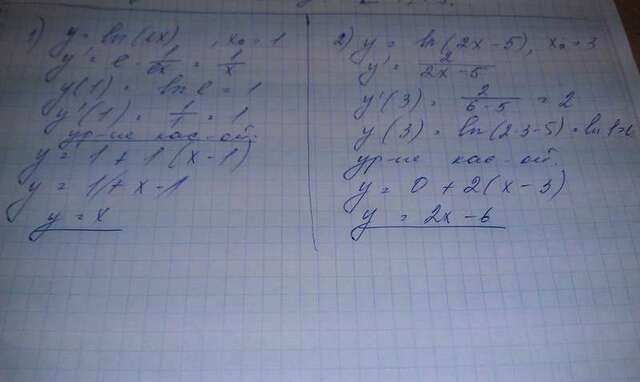 1) y = ln(ex), x₀ = 1
y' = e · 1/ex = 1/x
y(1) = ln e = 1
y'(1) = 1/1 = 1
ур-ие кас-ой:
y = 1 + 1(x-1)
y = 1 + x - 1
y = x
2) y = ln(2x-5), x₀ = 3
y' = 2/2x-5
y'(3) = 2/6-5 = 2
y(3) = ln(2·3-5) = ln 1 = 0
ур-ие кас-ой.
y = 0 + 2(x-3)
y = 2x-6